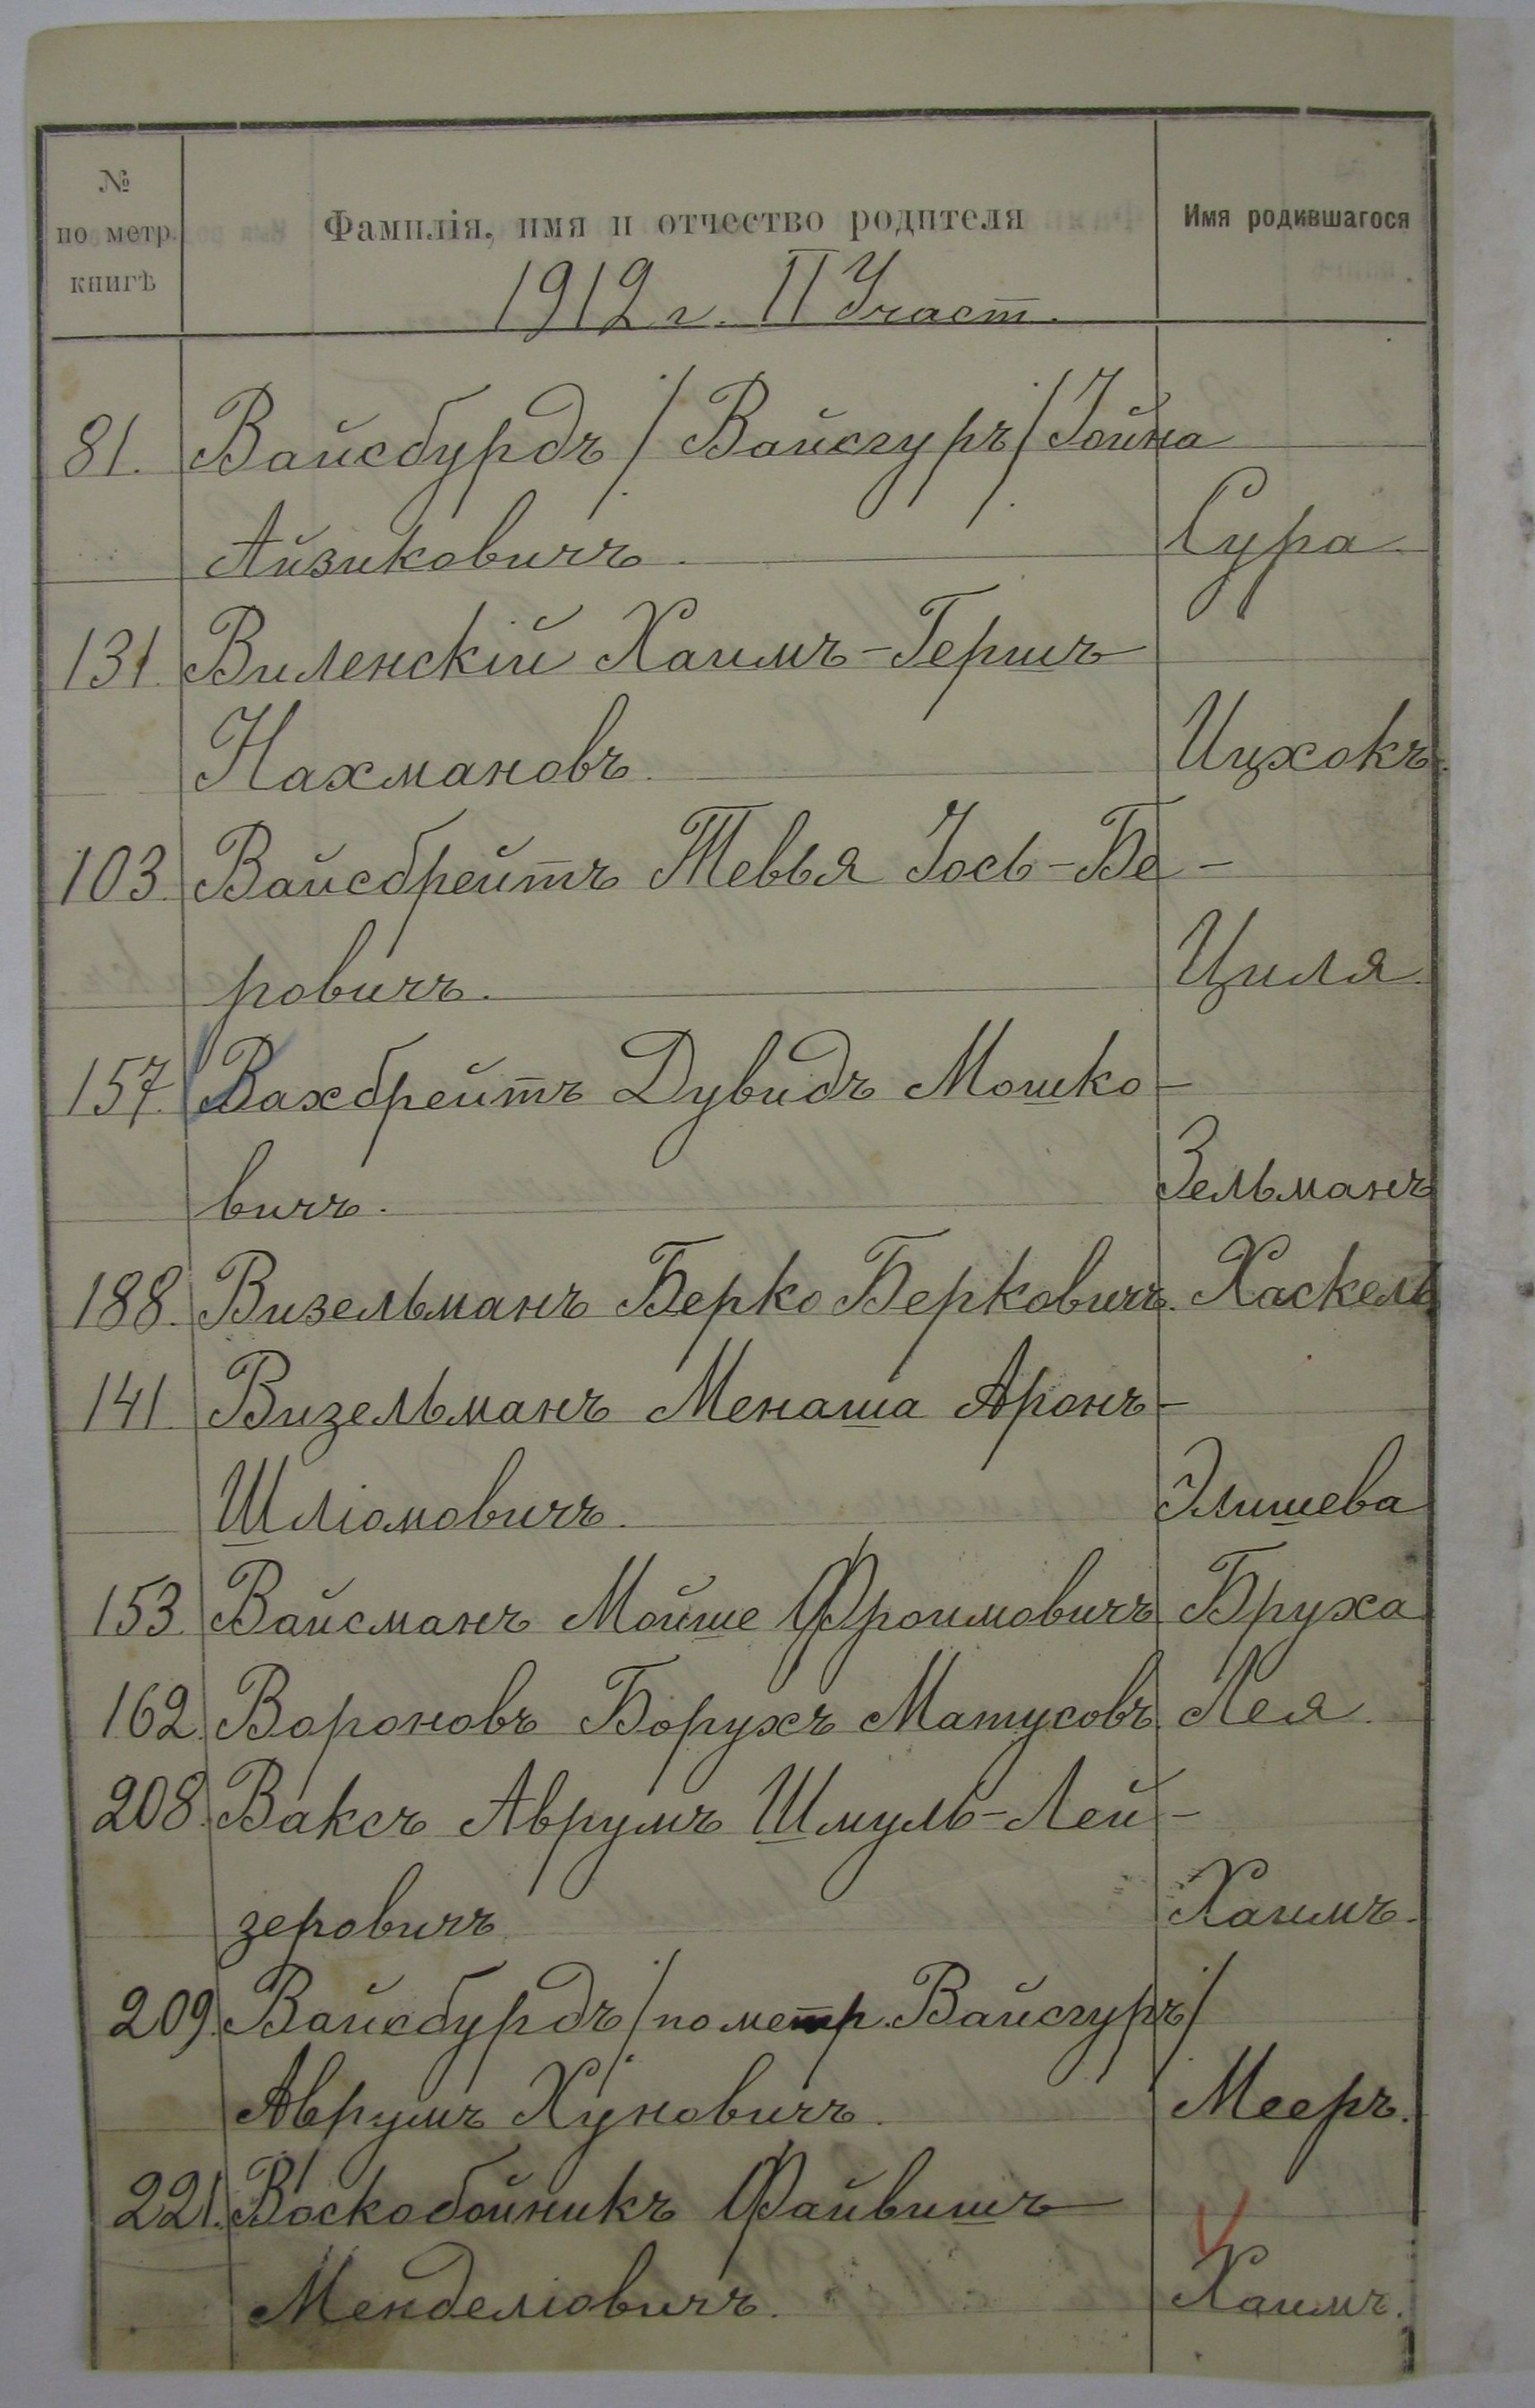 №
по метр.
книгѣ
Фамилія, имя и отчество родителя
Имя родившагося
1912 г. II Участ.
81. Вайсбурдъ /Вайсгуръ/ Іойна
Айзиковичъ. Сура
131. Виленскій Хаимъ-Гершъ
Нахмановъ. Ицхокъ.
103. Вайсбрейтъ Тевья Іось-Бе-
ровичъ. Циля.
157. Вахбрейтъ Дувидъ Мошко-
вичъ. Зельманъ
188. Визельманъ Берко Берковичъ. Хаскель
141 Визельманъ Менаша Аронъ-
Шліомовичъ. Элишева
153. Вайсманъ Мойше Фроимовичъ Бруха
162. Вороновъ Борухъ Матусовъ. Лея.
208.Ваксъ Аврумъ Шмуль-Лей-
зеровичъ Хаимъ.
209. Вайсбурдъ /по метр. Вайсгуръ/
Аврумъ Хуновичъ. Мееръ.
221. Воскобойникъ Файвишъ
Менделіовичъ. Хаимъ.